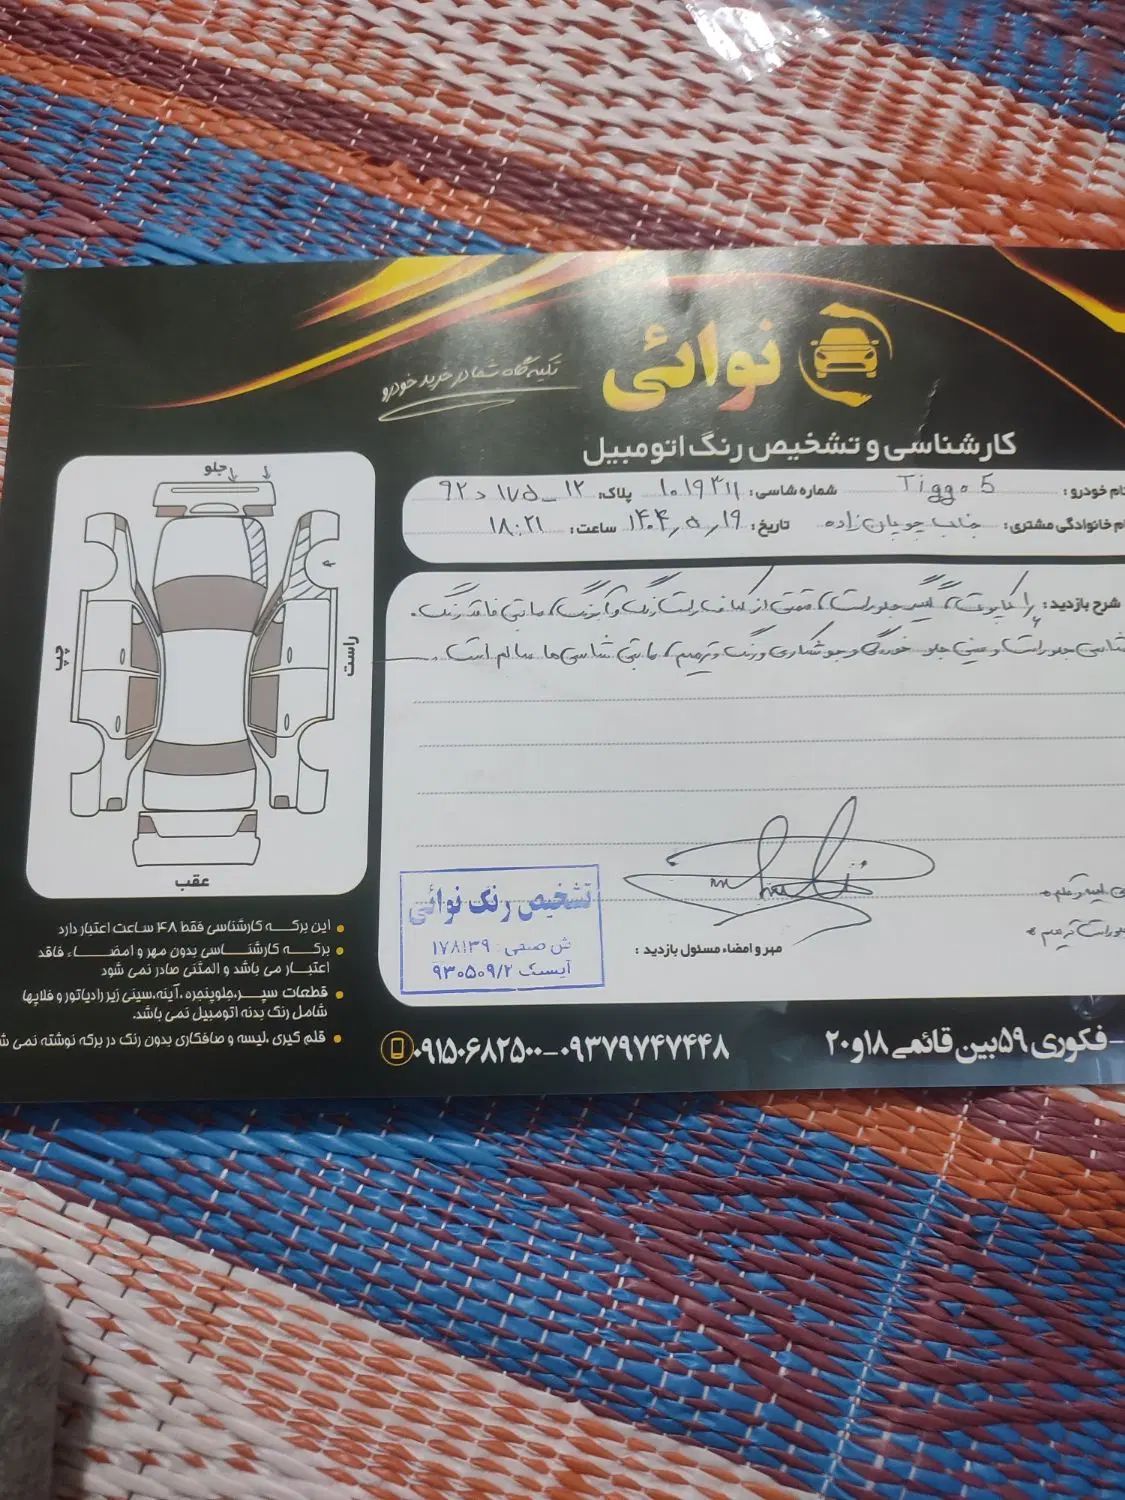 نوائی
تکیه گاه شما در خرید خودرو
کارشناسی و تشخیص رنگ اتومبیل
نام خودرو : Tiggo 5 شماره شاسی : ۱۰۱۹۳۱۱ پلاک: ۱۲ _ ۱۷۵ د ۹۲
نام خانوادگی مشتری : جناب چوپان زاده تاریخ : ۱۴۰۴٫۵٫۱۹ ساعت : ۱۸:۲۱
شرح بازدید : کاپوت، گلگیر جلو راست، قسمتی از رنگ مابقی فاقد رنگ.
شاسی جلو راست و سینی جلو خوردگی و جوشکاری و رنگ و ترمیم، مابقی شاسی ها سالم است.
جلو
چپ
راست
عقب
تشخیص رنگ نوائی
ش صنفی : ۱۷۸۱۳۹
آیسک ۹۳۰۵۰۹/۲
مهر و امضاء مسئول بازدید :
این برگه کارشناسی فقط ۴۸ ساعت اعتبار دارد
برگه کارشناسی بدون مهر و امضاء فاقد
اعتبار می باشد و المثنی صادر نمی شود
قطعات سپر، جلوپنجره ،آینه،سینی زیر رادیاتور و فلاپها
شامل رنگ بدنه اتومبیل نمی باشد.
قلم گیری ،لیسه و صافکاری بدون رنگ در برگه نوشته نمی
- فکوری ۵۹ بین قائمی ۱۸ و ۲۰
۰۹۱۵۰۶۸۲۵۰۰-۰۹۳۷۹۷۴۷۴۴۸